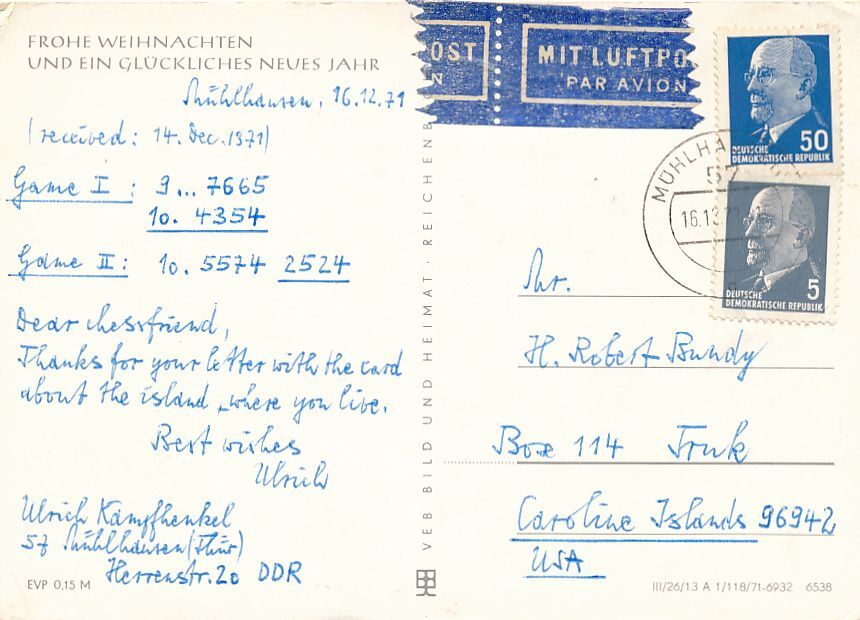 FROHE WEIHNACHTEN
UND EIN GLÜCKLICHES NEUES JAHR
Mühlhausen, 16.12.71
(received: 14. Dec. 1971)
Game I : 9... 7665
10. 4354
Game II : 10. 5574 2524
Dear chessfriend,
Thanks for your letter with the card
about the island, where you live.
Best wishes
Ulrich
Ulrich Kämpfhenkel
57 Mühlhausen (Thür)
Herrenstr. 20 DDR
EVP 0,15 M
VEB BILD UND HEIMAT · REICHENB
POST
N
MIT LUFTPO
PAR AVION
50
DEUTSCHE
DEMOKRATISCHE REPUBLIK
MÜHLHA
57
16.12.71
5
DEUTSCHE
DEMOKRATISCHE REPUBLIK
Mr.
H. Robert Bundy
Box 114 Truk
Caroline Islands 96942
USA
III/26/13 A 1/118/71-6932 6538